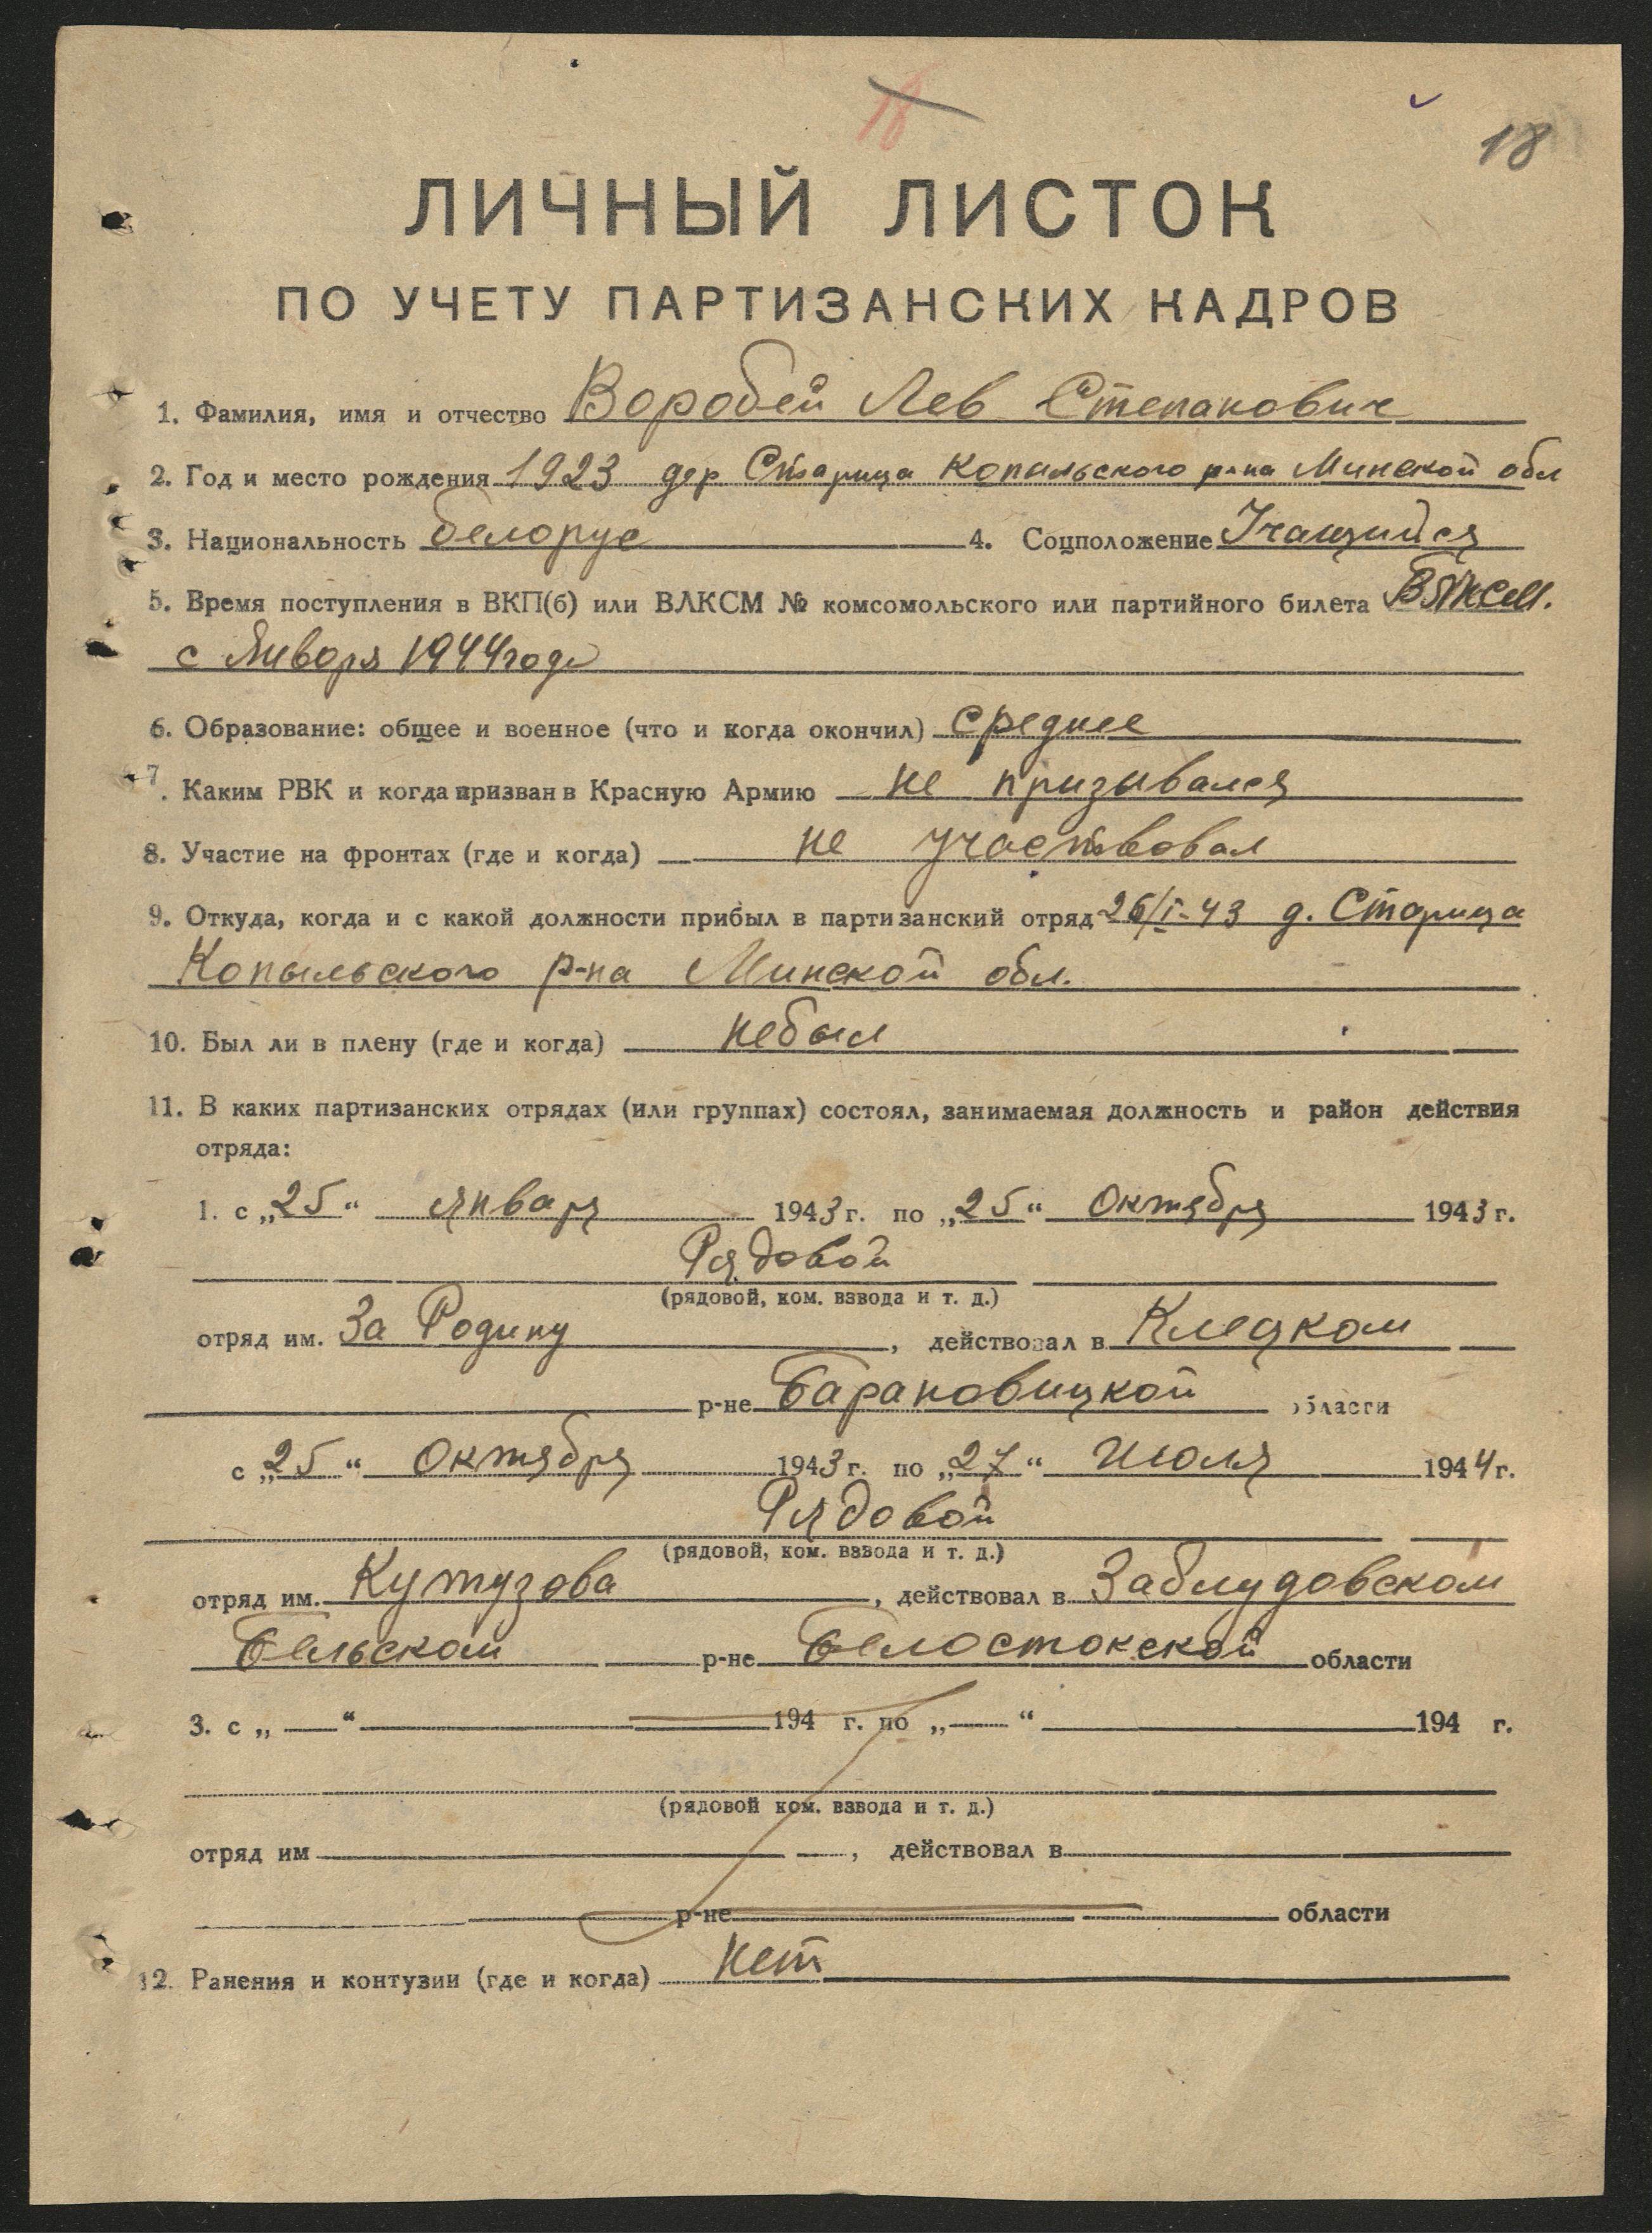 18
18
ЛИЧНЫЙ ЛИСТОК
ПО УЧЕТУ ПАРТИЗАНСКИХ КАДРОВ
1. Фамилия, имя и отчество Воробей Лев Степанович
2. Год и место рождения 1923 дер Старица Копыльского р-на Минской обл
3. Национальность белорус 4. Соцположение Учащийся
5. Время поступления в ВКП(б) или ВЛКСМ № комсомольского или партийного билета ВЛКСМ.
с Января 1944 года
6. Образование: общее и военное (что и когда окончил) среднее
7. Каким РВК и когда призван в Красную Армию не призывался
8. Участие на фронтах (где и когда) не участвовал
9. Откуда, когда и с какой должности прибыл в партизанский отряд 26/I-43 д. Старица
Копыльского р-на Минской обл.
10. Был ли в плену (где и когда) небыл
11. В каких партизанских отрядах (или группах) состоял, занимаемая должность и район действия
отряда:
1. с „25“ января 1943 г. по „25“ Октября 1943 г.
Рядовой
(рядовой, ком. взвода и т. д.)
отряд им. За Родину, действовал в Клецком
р-не Барановицкой области
с „25“ Октября 1943 г. по „27“ Июля 1944 г.
Рядовой
(рядовой, ком. взвода и т. д.)
отряд им. Кутузова, действовал в Заблудовском
Бельском р-не Белостокской области
3. с „ “ 194 г. по „ “ 194 г.
(рядовой ком. взвода и т. д.)
отряд им , действовал в
р-не области
12. Ранения и контузии (где и когда) нет